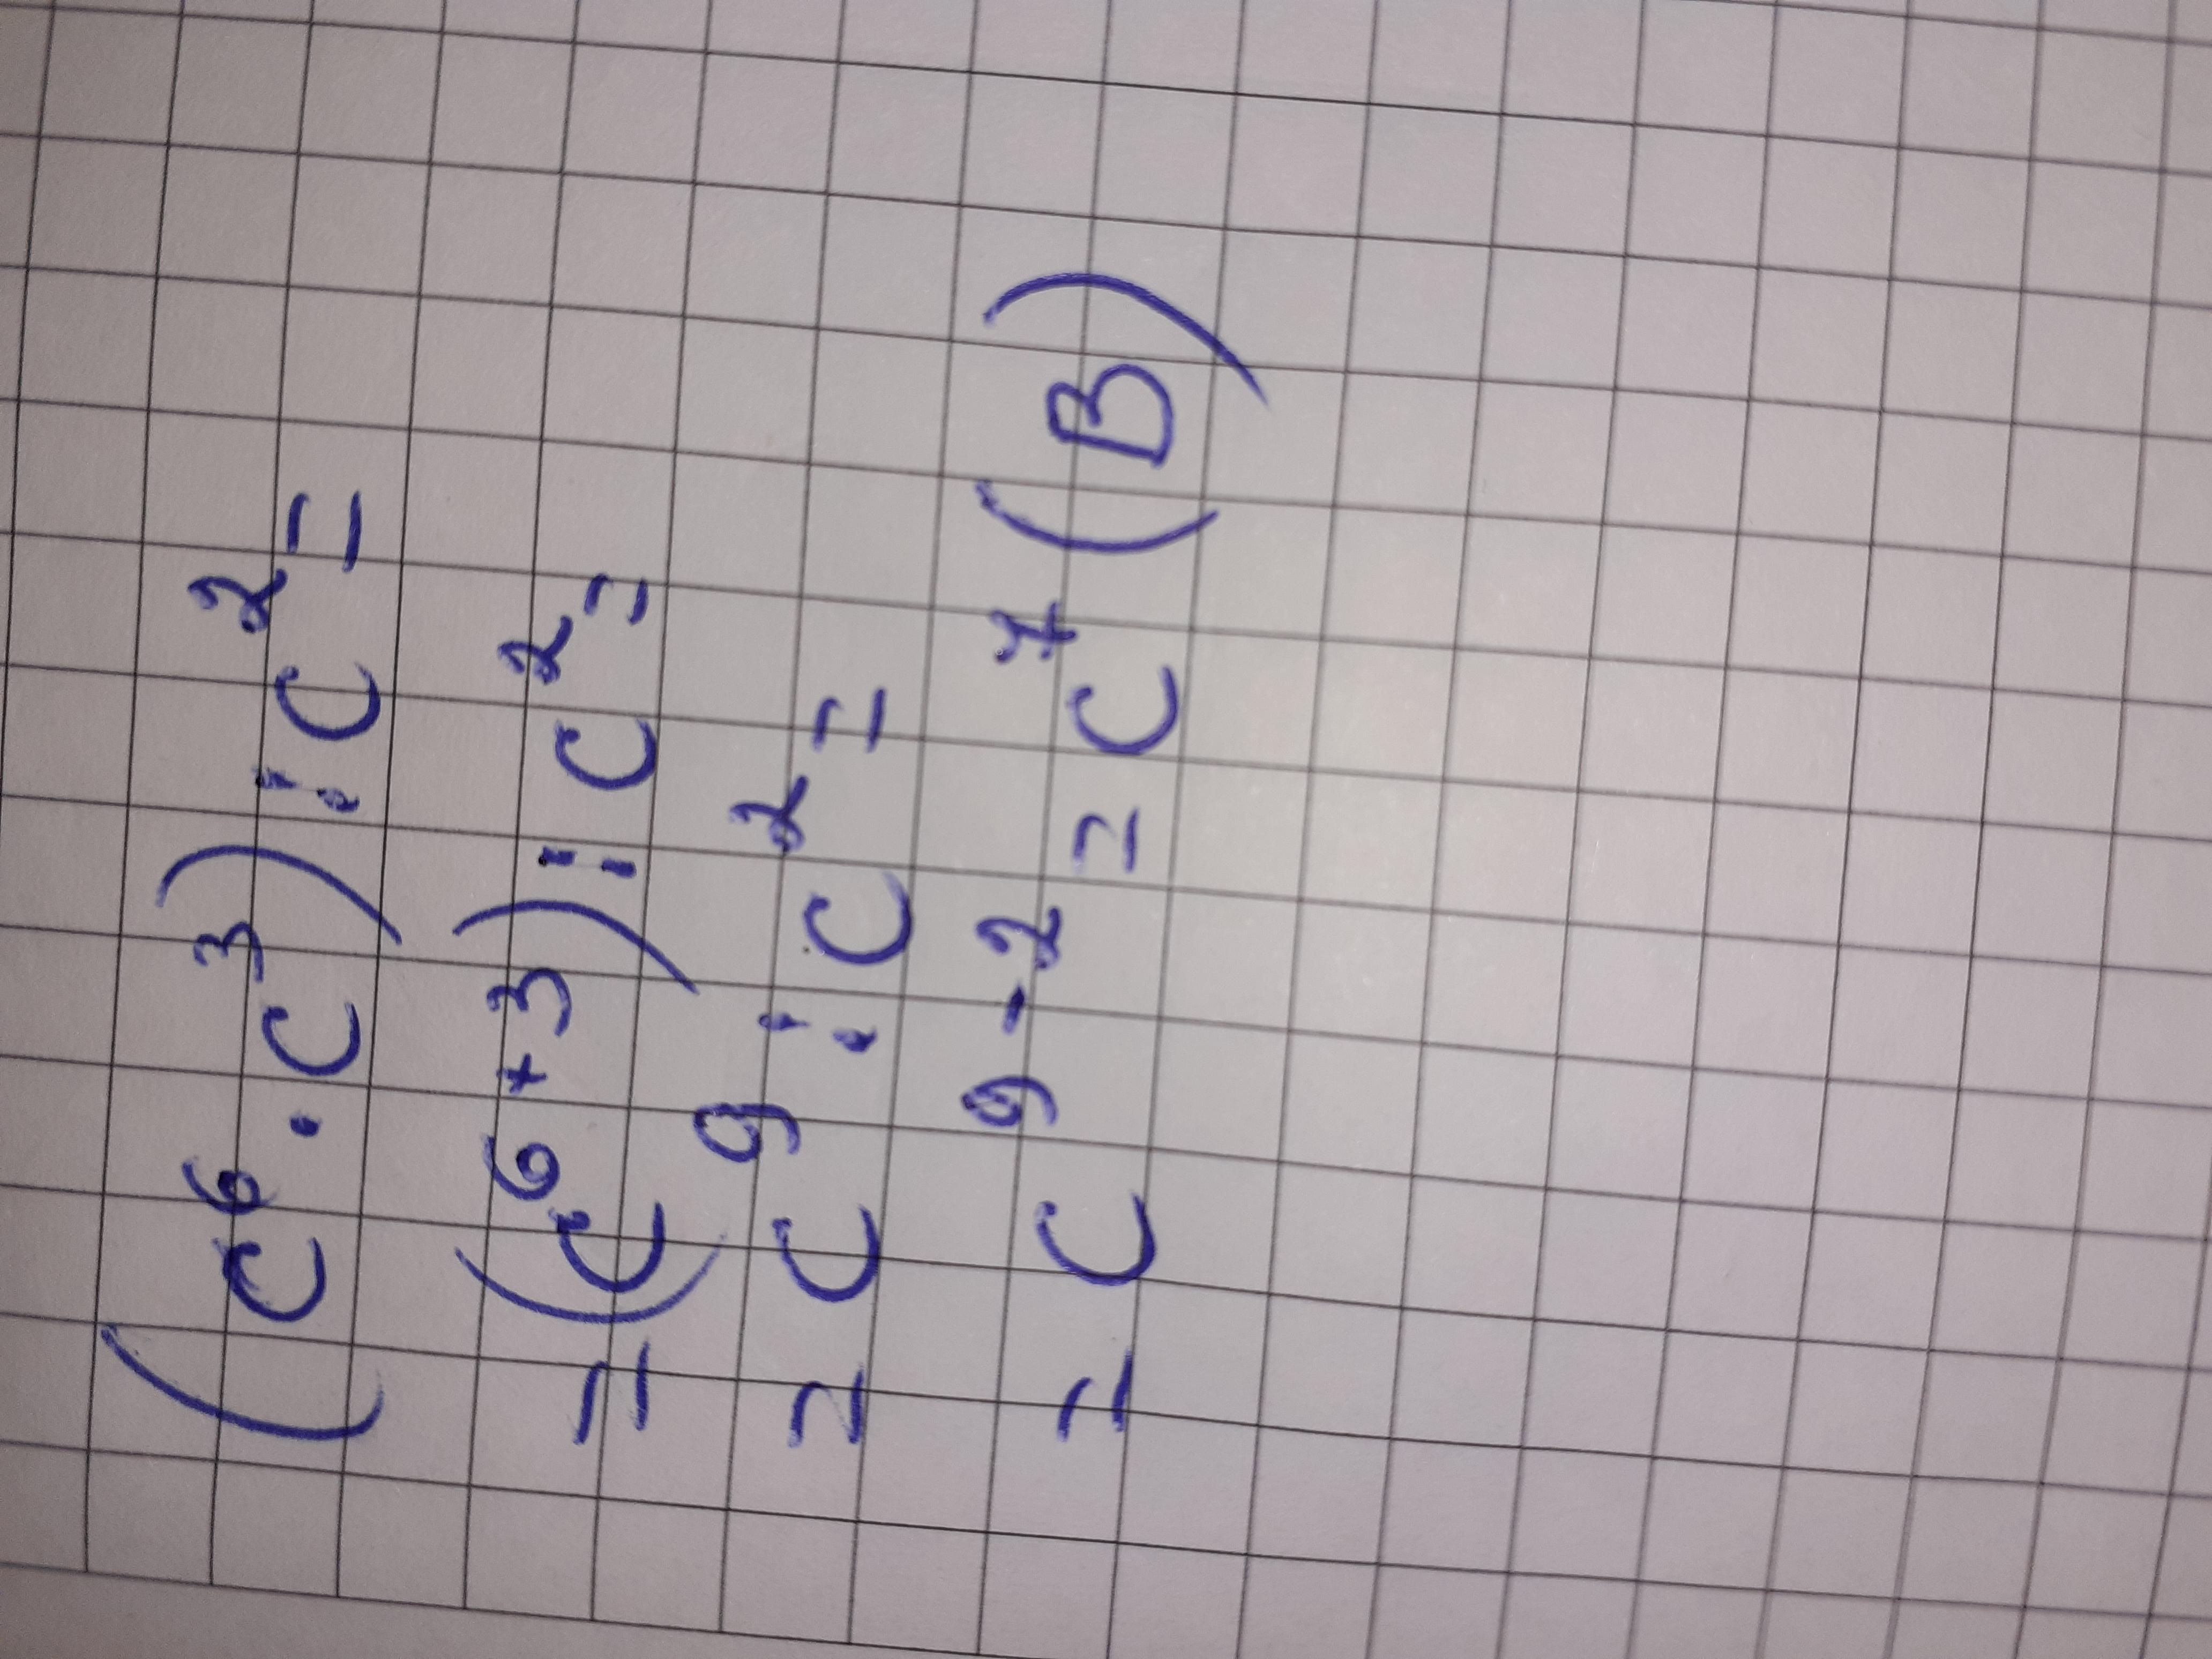 (c⁶ · c³) : c² =
= (c⁶⁺³) : c² =
= c⁹ : c² =
= c⁹⁻² = c⁷ (B)